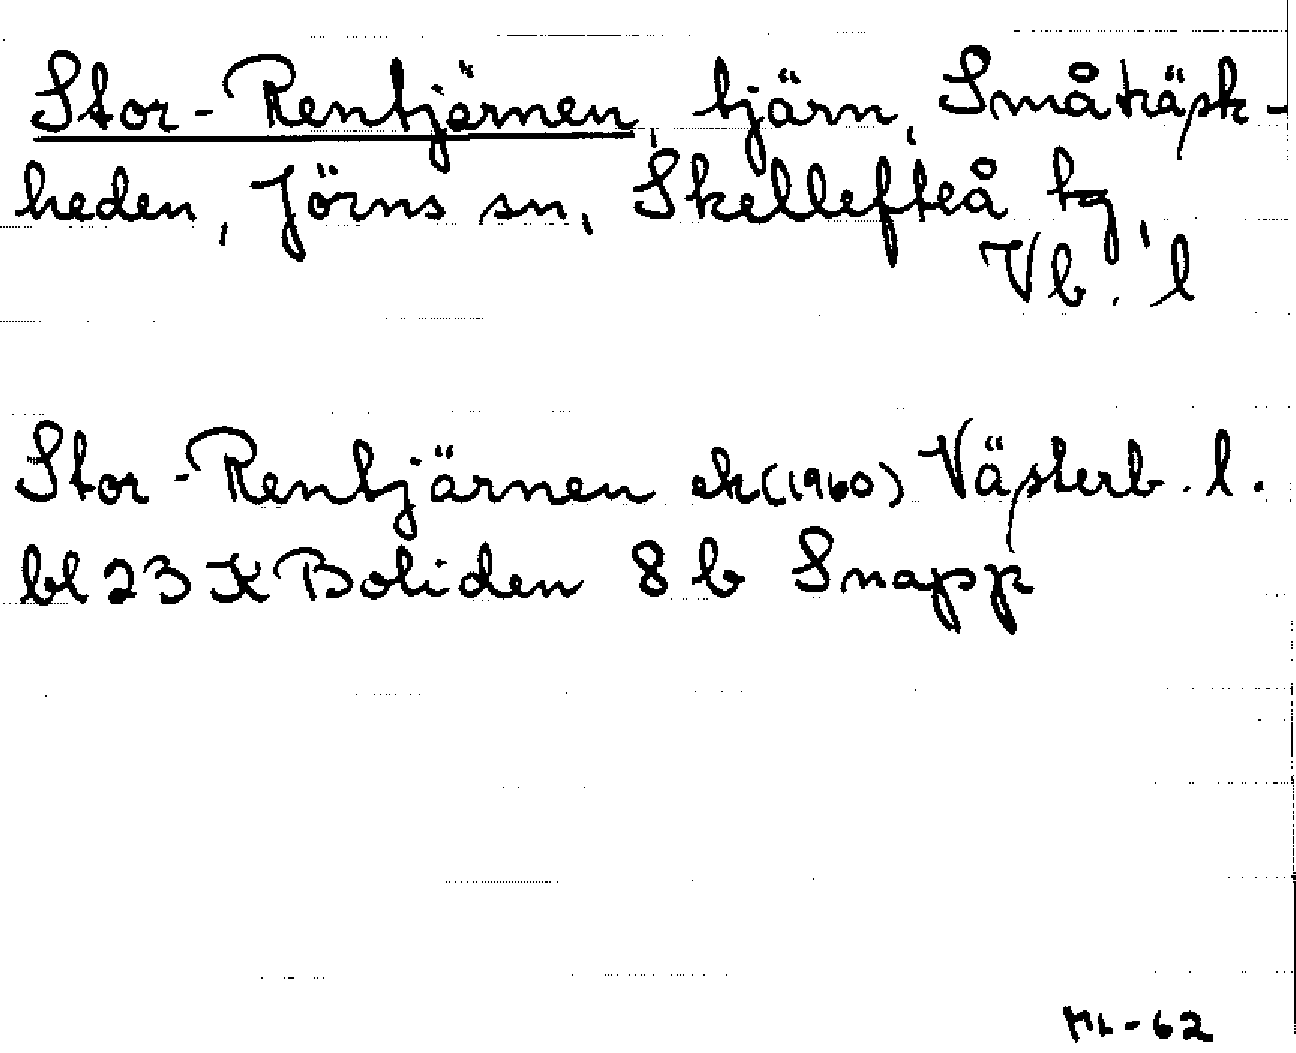 Stor-Rentjärnen, tjärn, Småträsk-
heden, Jörns sn, Skellefteå tg,
Vb. l
Stor-Rentjärnen ek (1960) Västerb. l.
bl 23 K Boliden 8 b Snapp
ML-62